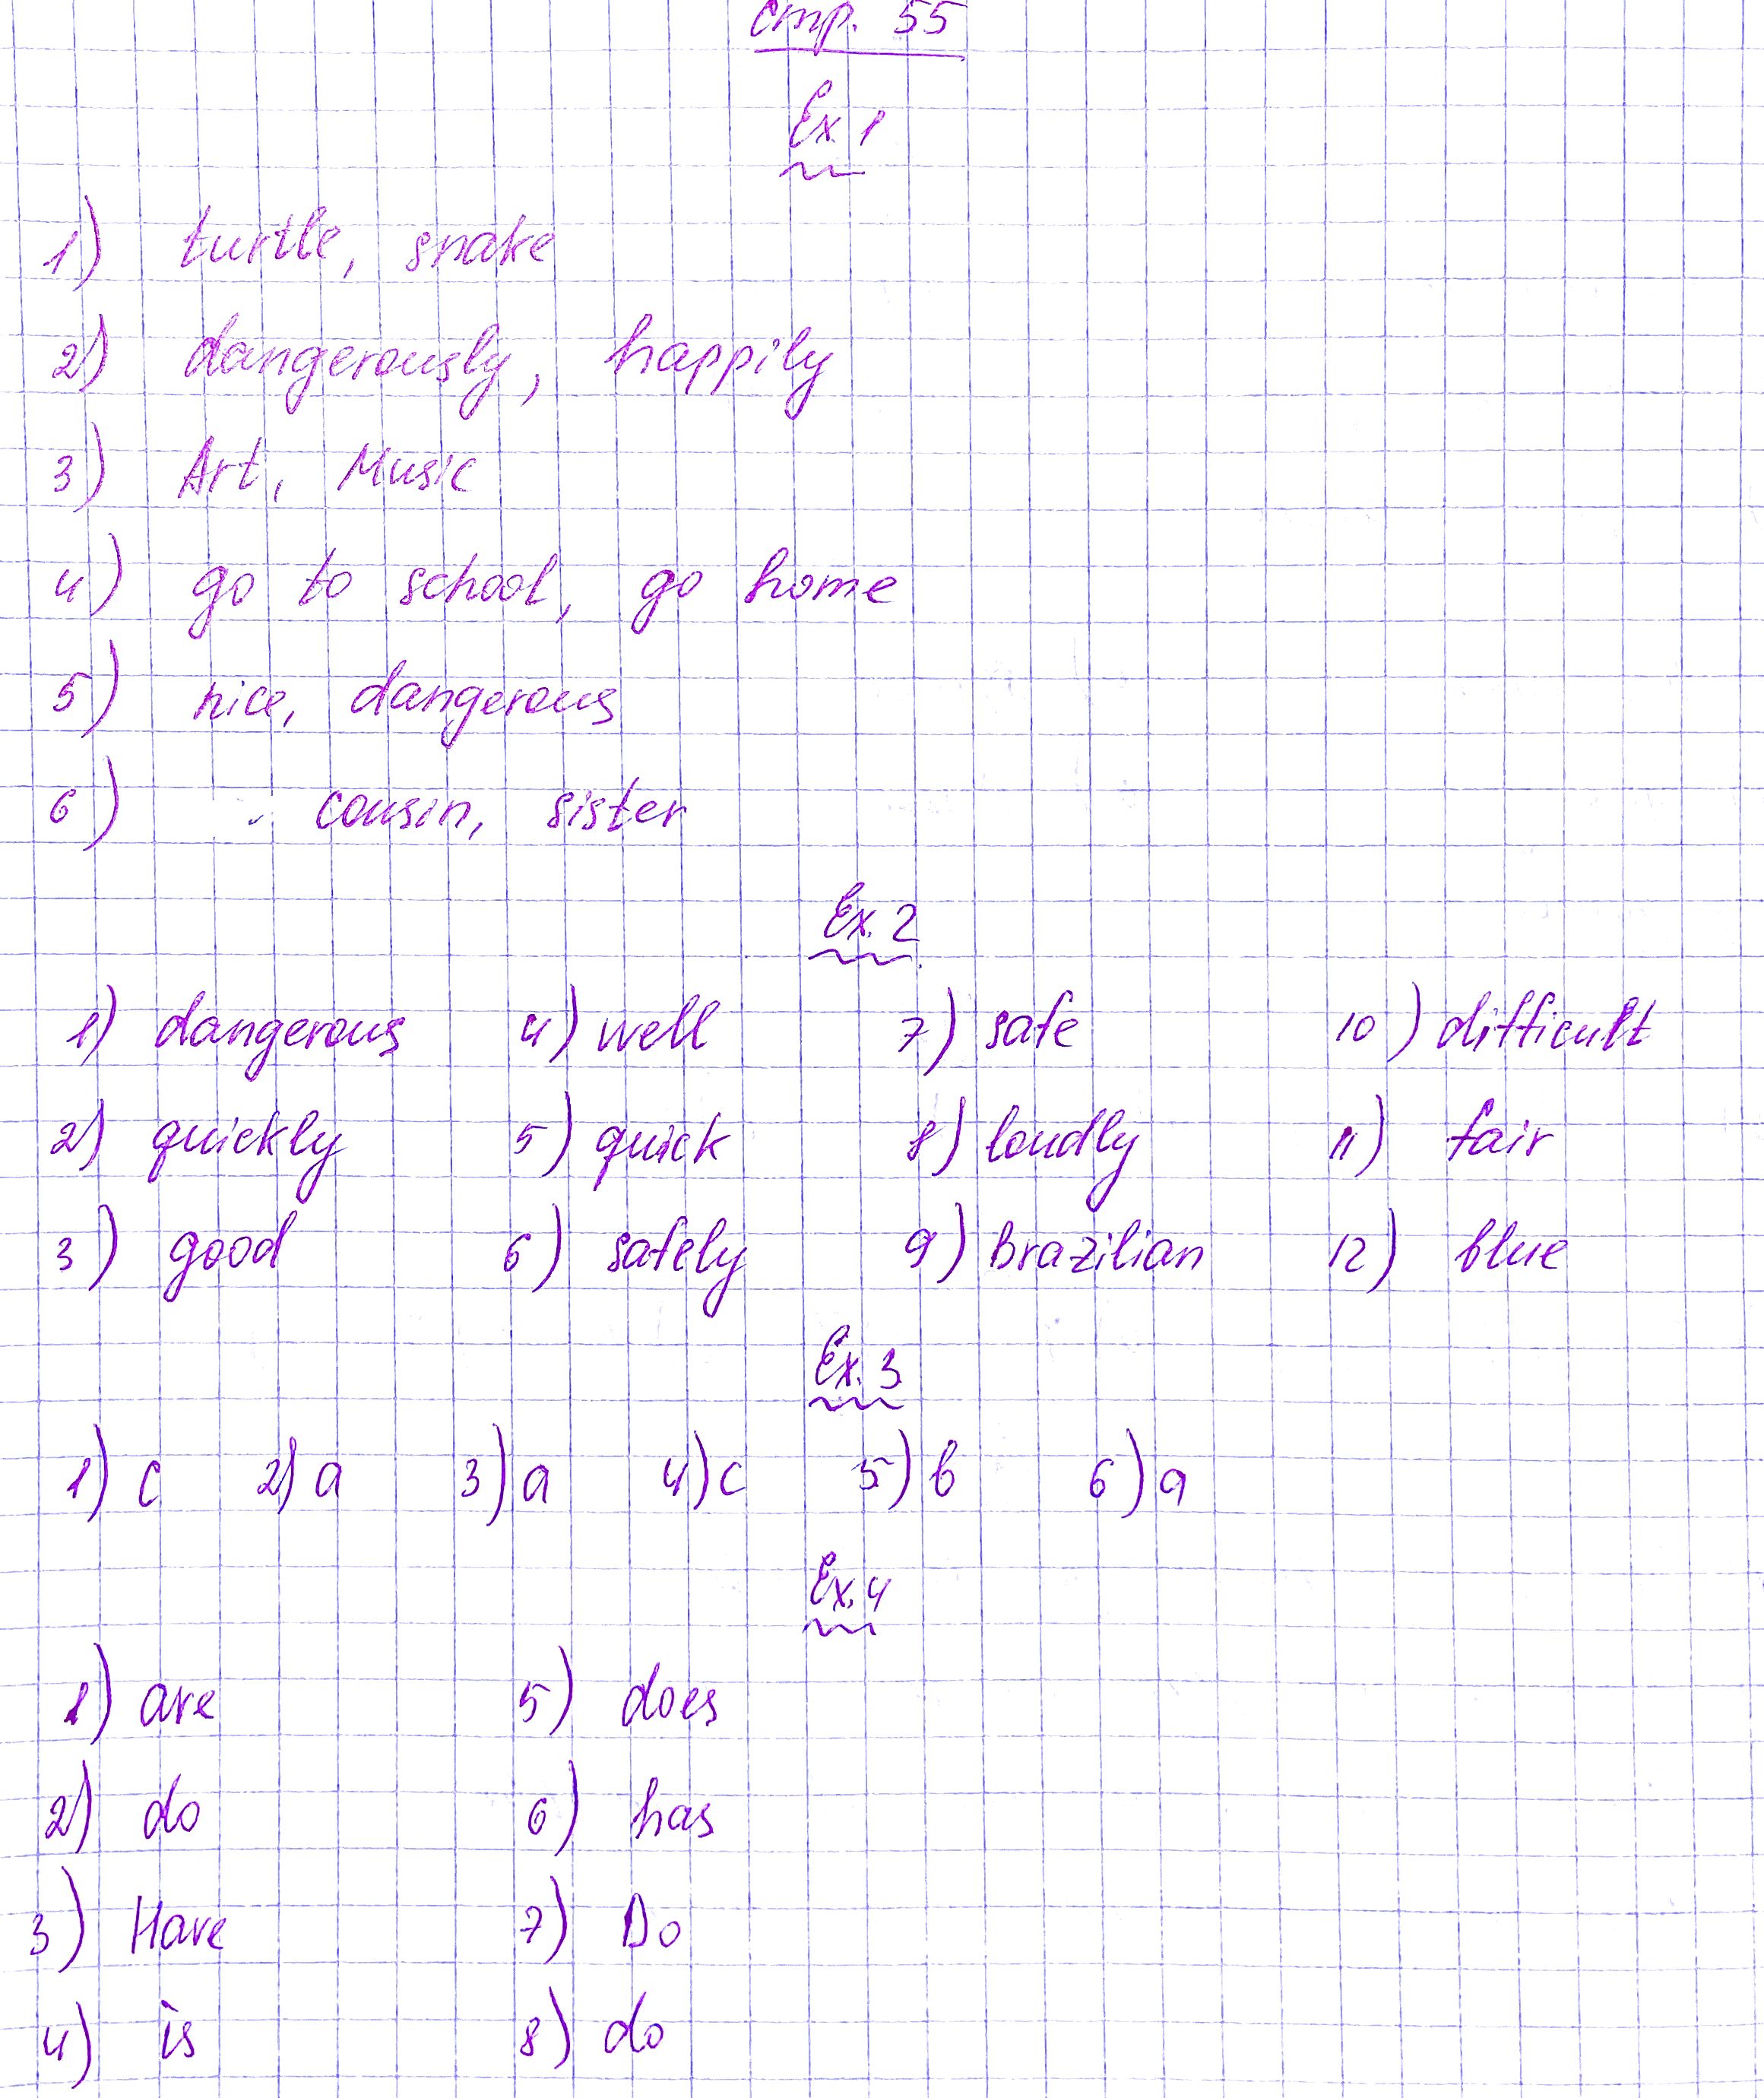 стр. 55
Ex. 1
1) turtle, snake
2) dangerously, happily
3) Art, Music
4) go to school, go home
5) nice, dangerous
6) cousin, sister
Ex. 2
1) dangerous 4) well 7) safe 10) difficult
2) quickly 5) quick 8) loudly 11) fair
3) good 6) safely 9) Brazilian 12) blue
Ex. 3
1) c 2) a 3) a 4) c 5) b 6) a
Ex. 4
1) are 5) does
2) do 6) has
3) Have 7) Do
4) is 8) do